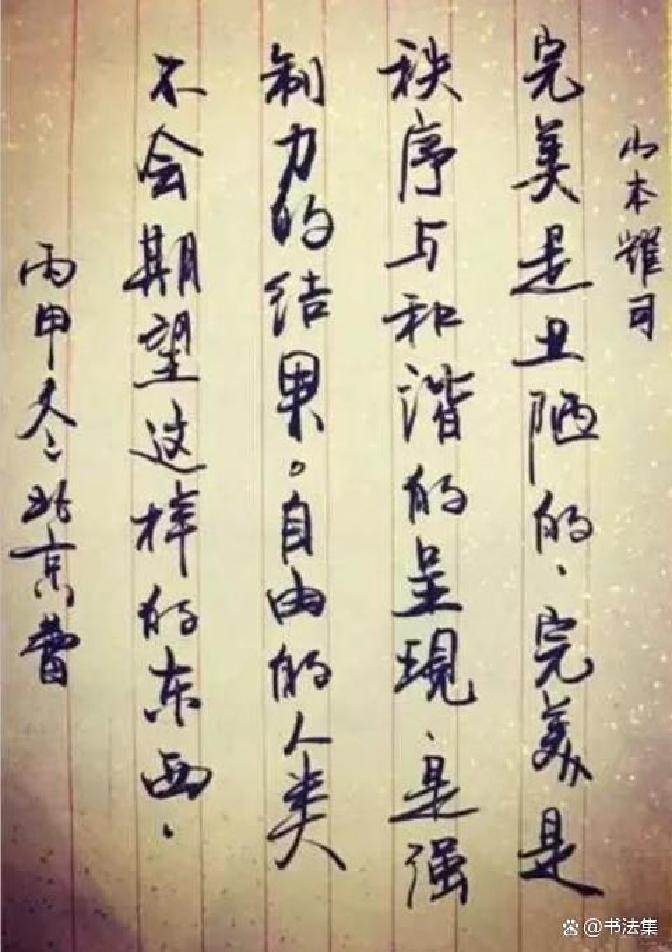 山本耀司
完美是丑陋的、完美是
秩序与和谐的呈現、是强
制力的结果。自由的人类
不会期望这样的东西、
丙申冬北京蕾
书法集